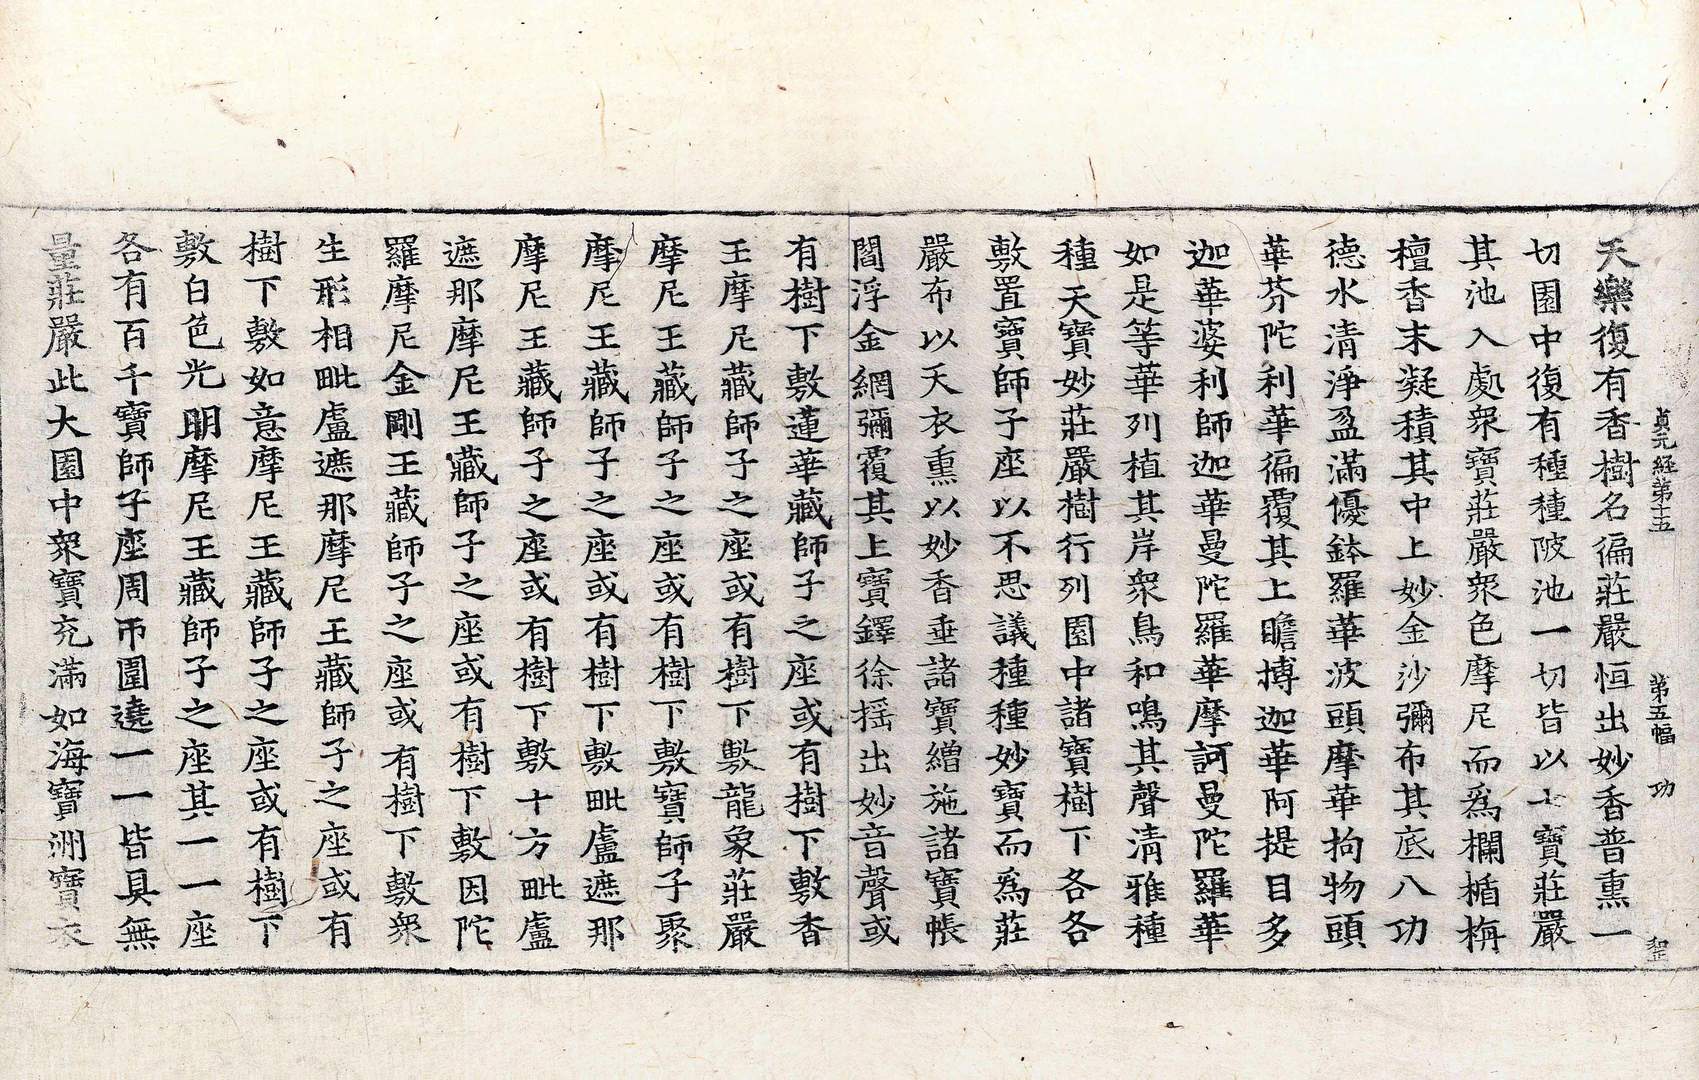 貞元経第十五　第五幅　功
天樂復有香樹名徧莊嚴恒出妙香普熏一
切園中復有種種陂池一切皆以七寶莊嚴
其池入處衆寶莊嚴衆色摩尼而爲欄楯栴
檀香末凝積其中上妙金沙彌布其底八功
德水清淨盈滿優鉢羅華波頭摩華拘物頭
華芬陀利華徧覆其上瞻博迦華阿提目多
迦華婆利師迦華曼陀羅華摩訶曼陀羅華
如是等華列植其岸衆鳥和鳴其聲清雅種
種天寶妙莊嚴樹行列園中諸寶樹下各各
敷置寶師子座以不思議種種妙寶而爲莊
嚴布以天衣熏以妙香垂諸寶繒施諸寶帳
閻浮金網彌覆其上寶鐸徐搖出妙音聲或
有樹下敷蓮華藏師子之座或有樹下敷香
王摩尼藏師子之座或有樹下敷龍象莊嚴
摩尼王藏師子之座或有樹下敷寶師子聚
摩尼王藏師子之座或有樹下敷毗盧遮那
摩尼王藏師子之座或有樹下敷十方毗盧
遮那摩尼王藏師子之座或有樹下敷因陀
羅摩尼金剛王藏師子之座或有樹下敷衆
生形相毗盧遮那摩尼王藏師子之座或有
樹下敷如意摩尼王藏師子之座或有樹下
敷白色光明摩尼王藏師子之座其一一座
各有百千寶師子座周帀圍遶一一皆具無
量莊嚴此大園中衆寶充滿如海寶洲寶衣